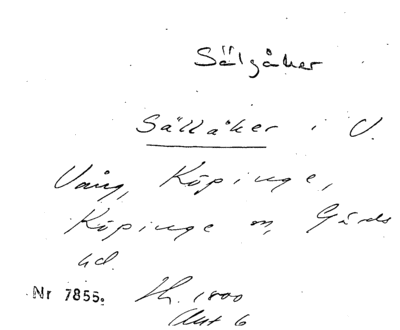 Sälgåker
Sällåker i V.
Vång, Köpinge,
Köpinge sn, Gärds
hd.
Nr 7855. Th. 1800
Akt 6